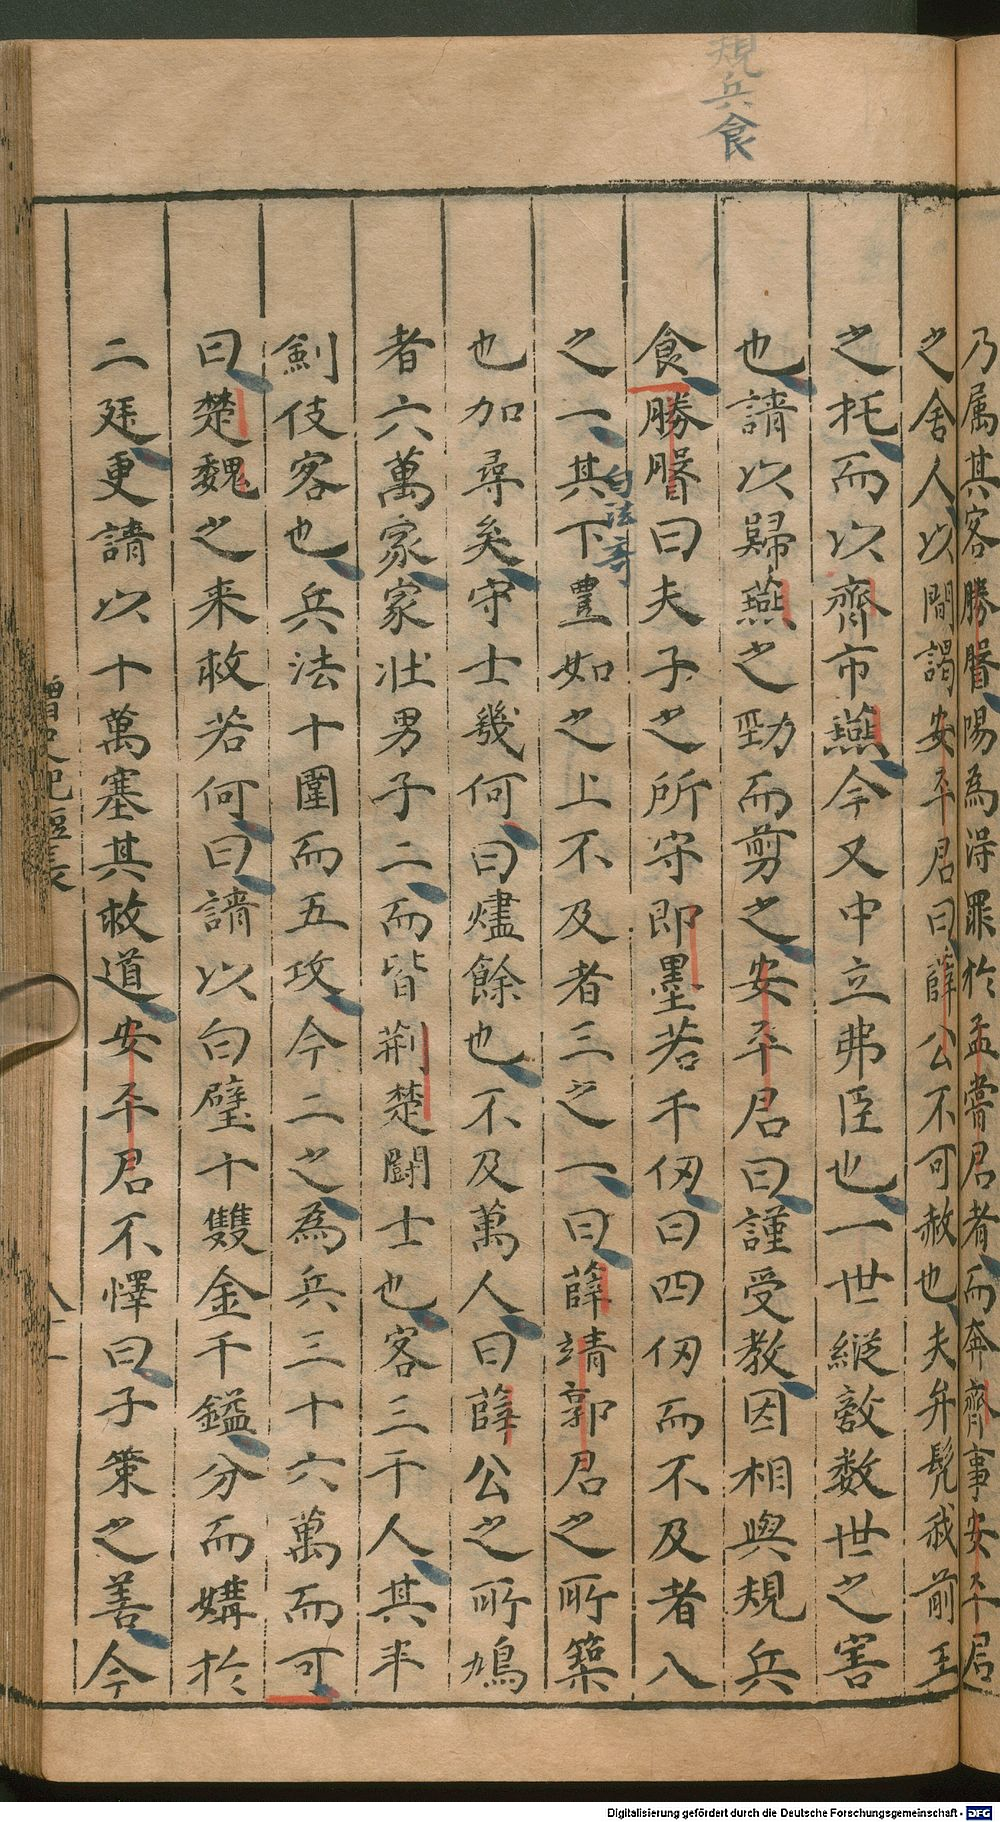 規兵食
乃属其客勝臋陽為淂罪於孟嘗君者而奔齊事安平君
之舍人以間謁安平君曰薛公不可赦也夫弁髦我前王
之托而以齊市燕今又中立弗臣也一世縱敵数世之害
也請以歸燕之勁而剪之安平君曰謹受教因相與規兵
食勝臋曰夫子之所守即墨若干仞曰四仞而不及者八
之一其下豊如之上不及者三之一曰薛靖郭君之所築
句法奇
也加尋矣守士幾何曰燼餘也不及萬人曰薛公之所鳩
者六萬家家壮男子二而皆荆楚闘士也客三千人其半
劍伎客也兵法十圍而五攻今二之為兵三十六萬而可
曰楚魏之来救若何曰請以白璧十雙金千鎰分而媾於
二廷更請以十萬塞其救道安平君不懌曰子策之善今
Digitalisierung gefördert durch die Deutsche Forschungsgemeinschaft - DFG